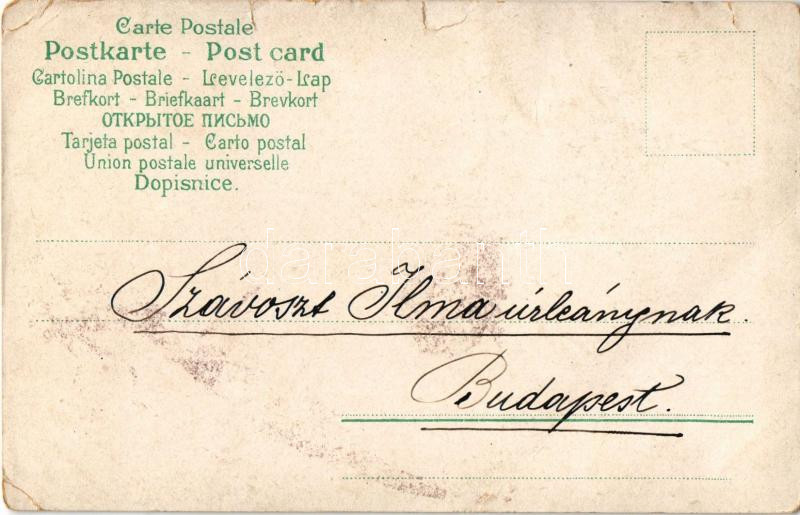 Carte Postale
Postkarte - Post card
Cartolina Postale - Levelező-Lap
Brefkort - Briefkaart - Brevkort
ОТКРЫТОЕ ПИСЬМО
Tarjeta postal - Carto postal
Union postale universelle
Dopisnice.
Szávoszt Ilma úrleánynak.
Budapest.